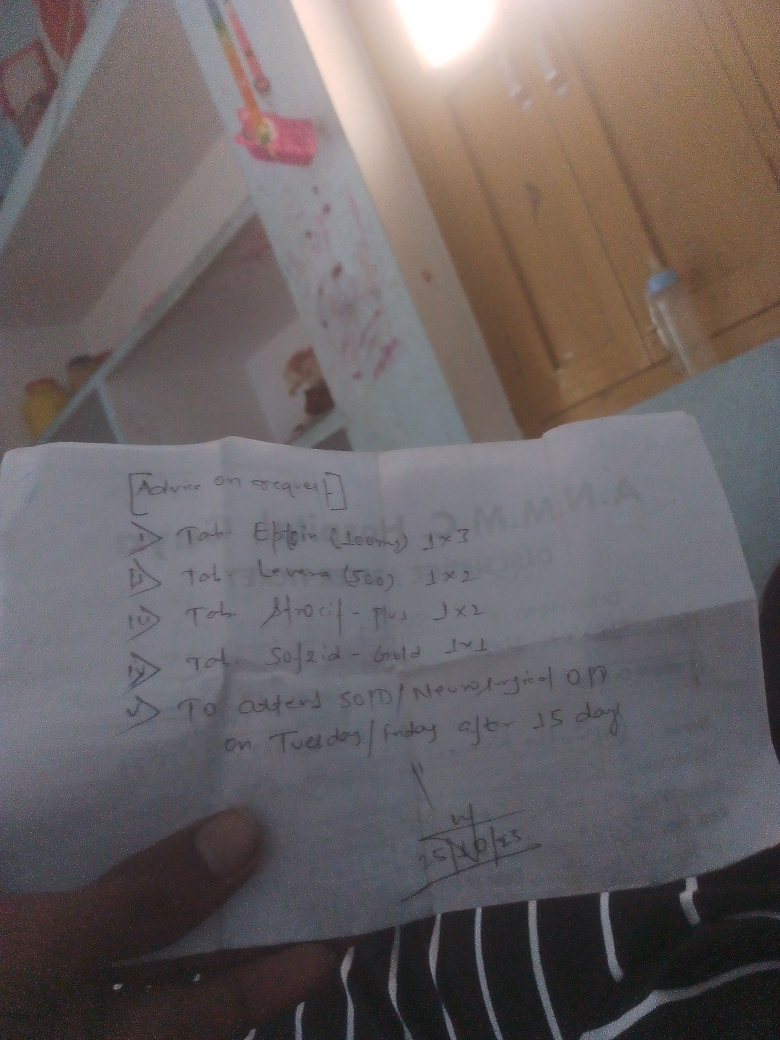 [Advice on request]
i> Tab. Eptoin (100mg) 1x3
ii> Tab Levera (500) 1x2
iii> Tab Strocit-Plus 1x2
iv> Tab. Sofzid-Gold 1x1
v> To attend SOPD/Neurosurgical OPD
on Tuesday/Friday after 15 day
25/10/23
A.N.M.M.C. Hospital
DISCHARGE